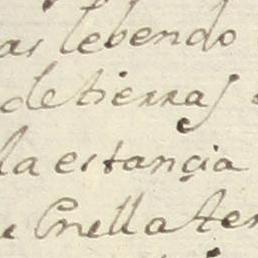 as lebendo
de tierras
la estançia
e Enella ten